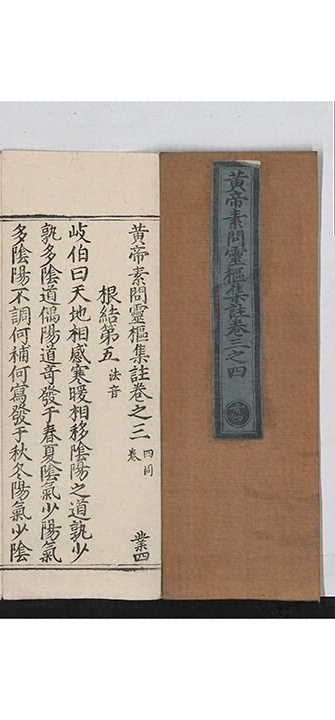 黃帝素問靈樞集註卷三之四
黃帝素問靈樞集註卷之三
四同
卷
業四
根結第五
法音
岐伯曰天地相感寒暖相移陰陽之道孰少
孰多陰道偶陽道奇發于春夏陰氣少陽氣
多陰陽不調何補何寫發于秋冬陽氣少陰